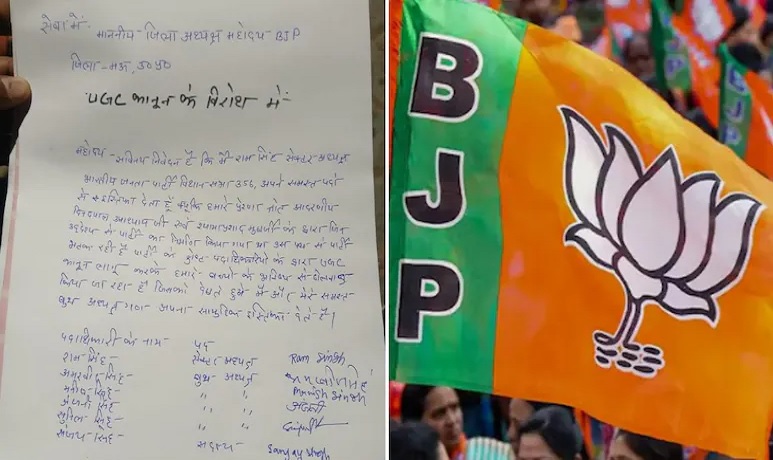 सेवा में,
माननीय - जिला अध्यक्ष महोदय - BJP
जिला - मऊ, उ०प्र०
UGC कानून के विरोध में-
महोदय - सविनय निवेदन है कि मैं राम सिंह सेक्टर अध्यक्ष
भारतीय जनता पार्टी विधान सभा 356, अपने समस्त पदो
से इस्तिफा देता हूँ क्यूकि हमारे प्रेरणा स्रोत आदरणीय
उपाध्याय जी एवं श्यामाप्रसाद मुखर्जी के द्वारा जिस
उद्देश्य से पार्टी का निर्माण किया गया था उस पथ से पार्टी
भटक रही है पार्टी के पदाधिकारियो के द्वारा UGC
कानून लागू करके हमारे बच्चो के भविष्य से
किया जा रहा है जिसको देखते हुये मैं और मेरे समस्त
बुथ अध्यक्ष गण अपना सामुहिक इस्तिफा देते हैं।
पदाधिकारी के नाम - पद
राम सिंह - सेक्टर अध्यक्ष Ram Singh
सिंह - बुथ अध्यक्ष
मनीष सिंह - " " Manish Singh
अंजनी सिंह " " अंजनी
सुनिल सिंह - " "
संजय सिंह - सदस्य - Sanjay Singh
BJP